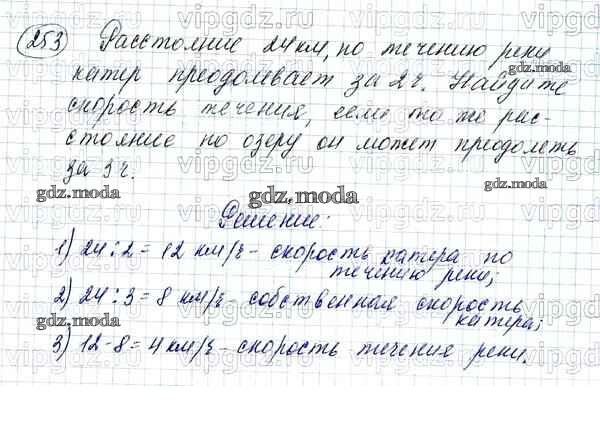 253 Расстояние 24 км, по течению реки
катер преодолевает за 2 ч. Найдите
скорость течения, если то же рас-
стояние по озеру он может преодолеть
за 3 ч.
Решение:
1) 24 : 2 = 12 км/ч - скорость катера по
течению реки;
2) 24 : 3 = 8 км/ч - собственная скорость
катера;
3) 12 - 8 = 4 км/ч - скорость течения реки.
vipgdz.ru
gdz.moda